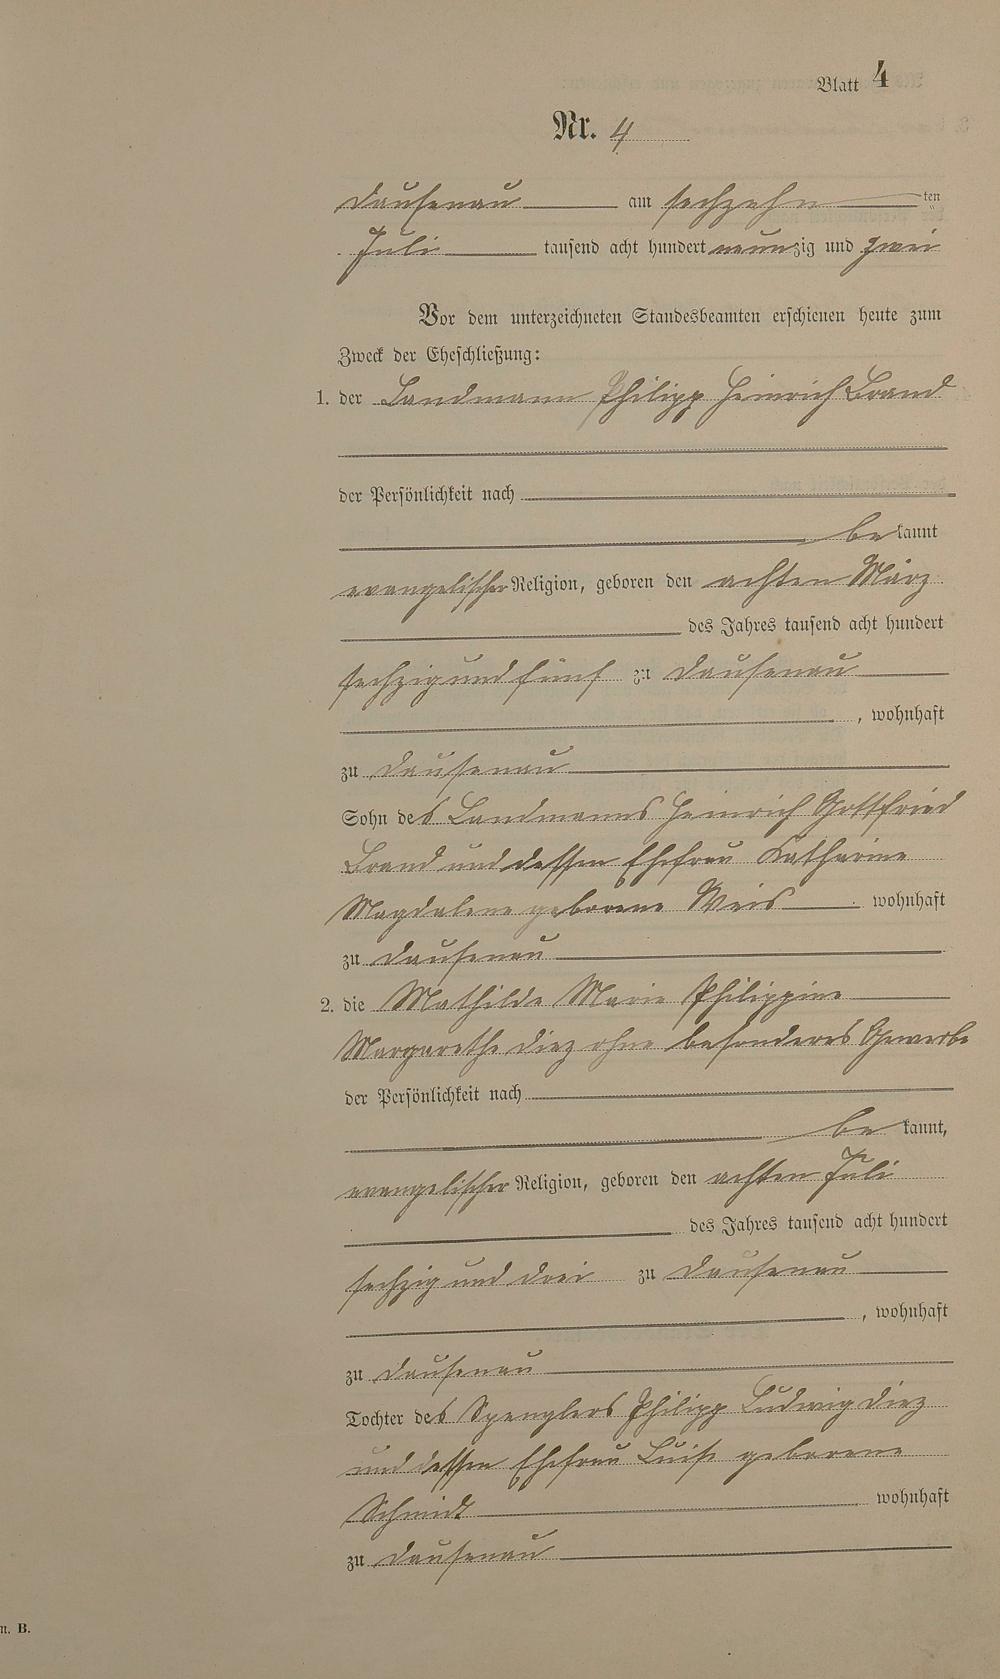 Blatt 4
Nr. 4
Dausenau am sechzehn ten
Juli tausend acht hundert neunzig und zwei
Vor dem unterzeichneten Standesbeamten erschienen heute zum
Zweck der Eheschließung:
1. der Landmann Philipp Heinrich Brand
der Persönlichkeit nach
be kannt
evangelischer Religion, geboren den achten März
des Jahres tausend acht hundert
sechzig und fünf zu Dausenau
, wohnhaft
zu Dausenau
Sohn des Landmanns Heinrich Gottfried
Brand und dessen Ehefrau Katharine
Magdalene geborene Weis wohnhaft
zu Dausenau
2. die Mathilde Marie Philippine
Margarethe Diez ohne besonderes Gewerbe
der Persönlichkeit nach
be kannt,
evangelischer Religion, geboren den achten Juli
des Jahres tausend acht hundert
sechzig und drei zu Dausenau
, wohnhaft
zu Dausenau
Tochter des Spenglers Philipp Ludwig Diez
und dessen Ehefrau Luise geborene
Schmidt wohnhaft
zu Dausenau
u. B.